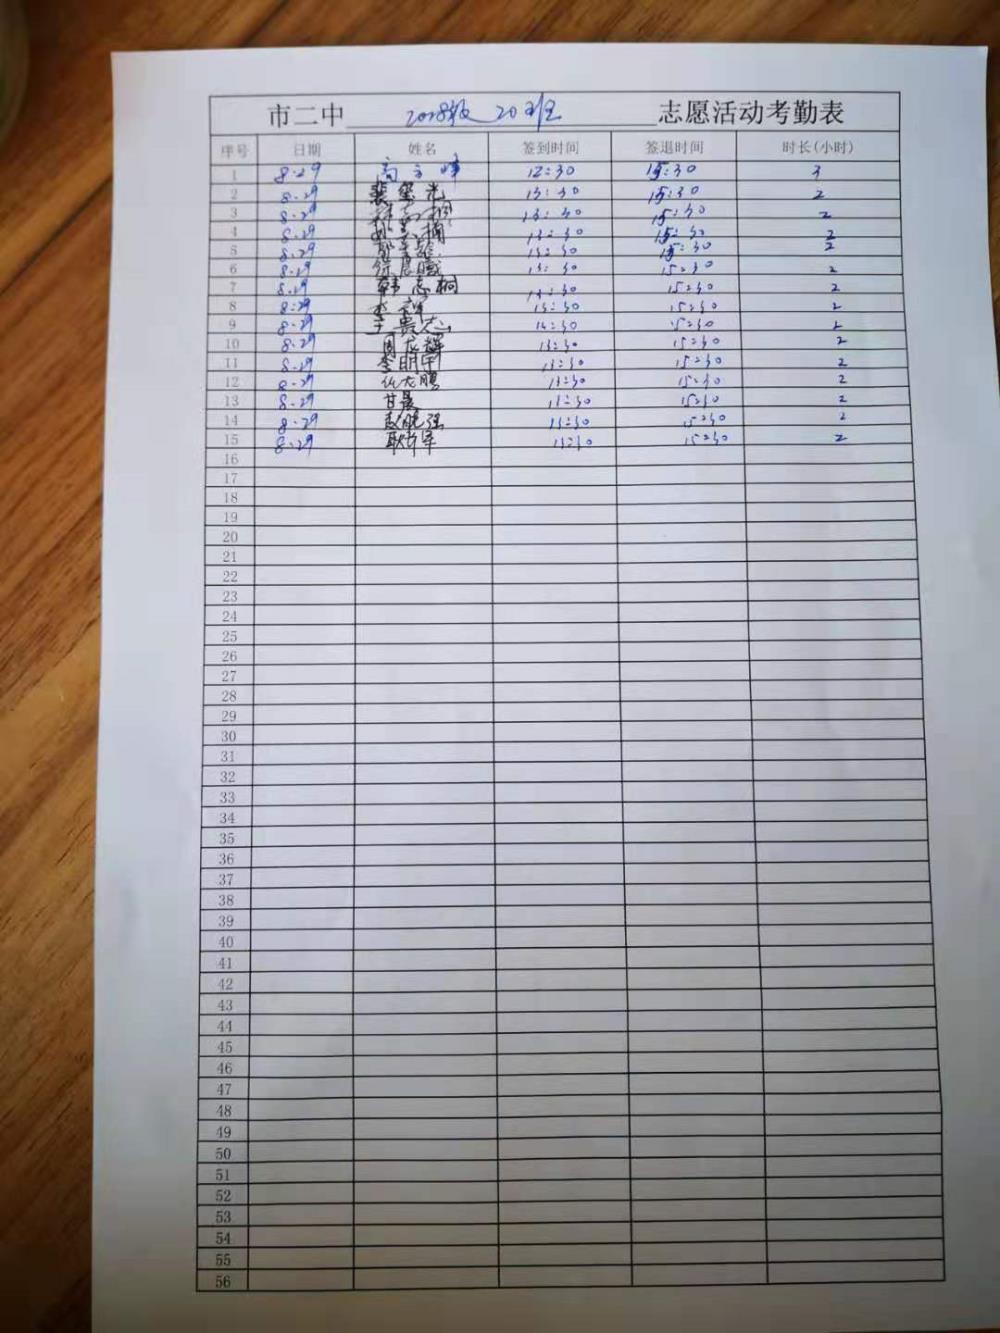 市二中 2018级 20班 志愿活动考勤表
序号 日期 姓名 签到时间 签退时间 时长(小时)
1 8.29 高 12:30 15:30 3
2 8.29 裴玺光 13:30 15:30 2
3 8.29 13:30 15:30 2
4 8.29 13:30 15:30 2
5 8.29 13:30 15:30 2
6 8.29 13:30 15:30 2
7 8.29 韩志桐 13:30 15:30 2
8 8.29 李 13:30 15:30 2
9 8.29 王贵志 15:30
10 8.29 周龙辉 13:30 15:30 2
11 8.29 李明 13:30 15:30 2
12 8.29 仇龙鹏 13:30 15:30 2
13 8.29 甘晟 13:30 15:30 2
14 8.29 赵晓强 13:30 15:30 2
15 8.29 耿 13:30 15:30 2
16
17
18
19
20
21
22
23
24
25
26
27
28
29
30
31
32
33
34
35
36
37
38
39
40
41
42
43
44
45
46
47
48
49
50
51
52
53
54
55
56